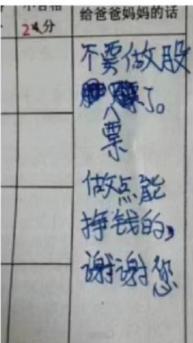 不合格
给爸爸妈妈的话
2分
不要做股
票了。
做点能
挣钱的,
谢谢您